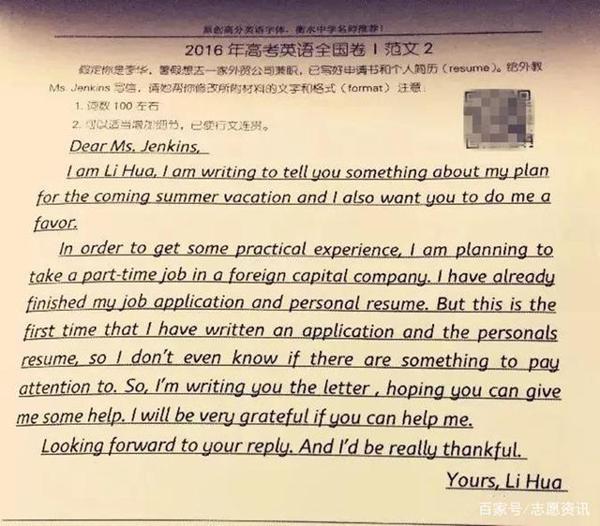 原创高分英语字体,衡水中学名师推荐!
2016年高考英语全国卷 I 范文2
假定你是李华,暑假想去一家外贸公司兼职,已写好申请书和个人简历(resume)。给外教
Ms. Jenkins 写信,请她帮你修改所附材料的文字和格式(format) 注意:
1. 词数 100 左右
2. 可以适当增加细节,已使行文连贯。
Dear Ms. Jenkins,
I am Li Hua, I am writing to tell you something about my plan
for the coming summer vacation and I also want you to do me a
favor.
In order to get some practical experience, I am planning to
take a part-time job in a foreign capital company. I have already
finished my job application and personal resume. But this is the
first time that I have written an application and the personals
resume, so I don't even know if there are something to pay
attention to. So, I'm writing you the letter , hoping you can give
me some help. I will be very grateful if you can help me.
Looking forward to your reply. And I'd be really thankful.
Yours, Li Hua
百家号/志愿资讯